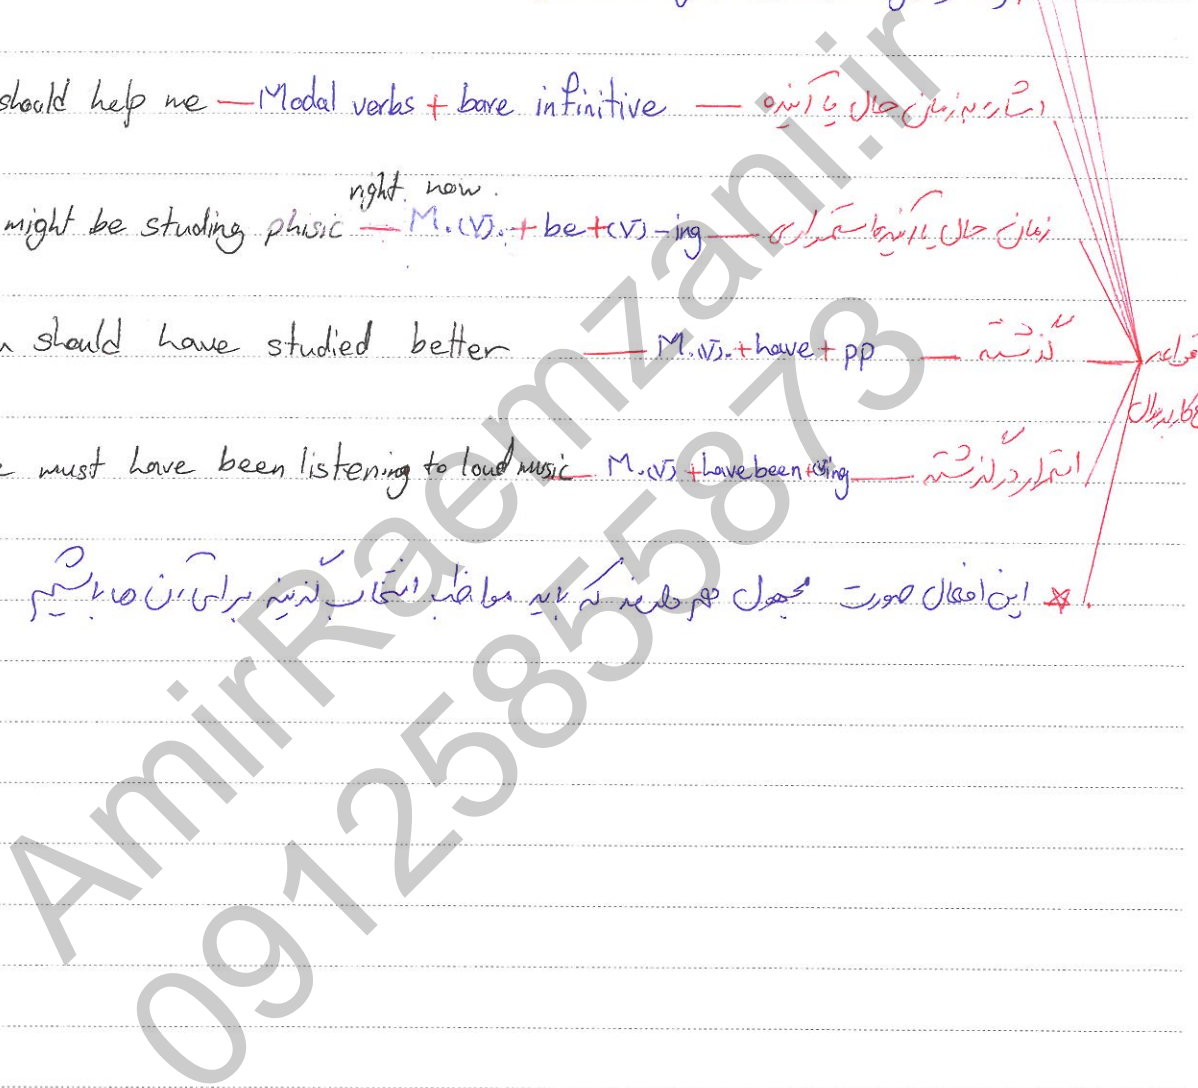 should help me — Modal verbs + bare infinitive — اشاره به زمان حال یا آینده
right now.
might be studing phisic — M.(V). + be + (V) - ing — زمان حال یا آینده استمراری
should have studied better — M.(V). + have + pp — گذشته
قواعد
کاربرد
must have been listening to loud music — M.(V) + have been + (V)ing — استمرار در گذشته
☆ این افعال صورت مجهول هم دارند که باید مواظب انتخاب گزینه برای آن ها باشیم
AmirRaemzani.ir
09125855873